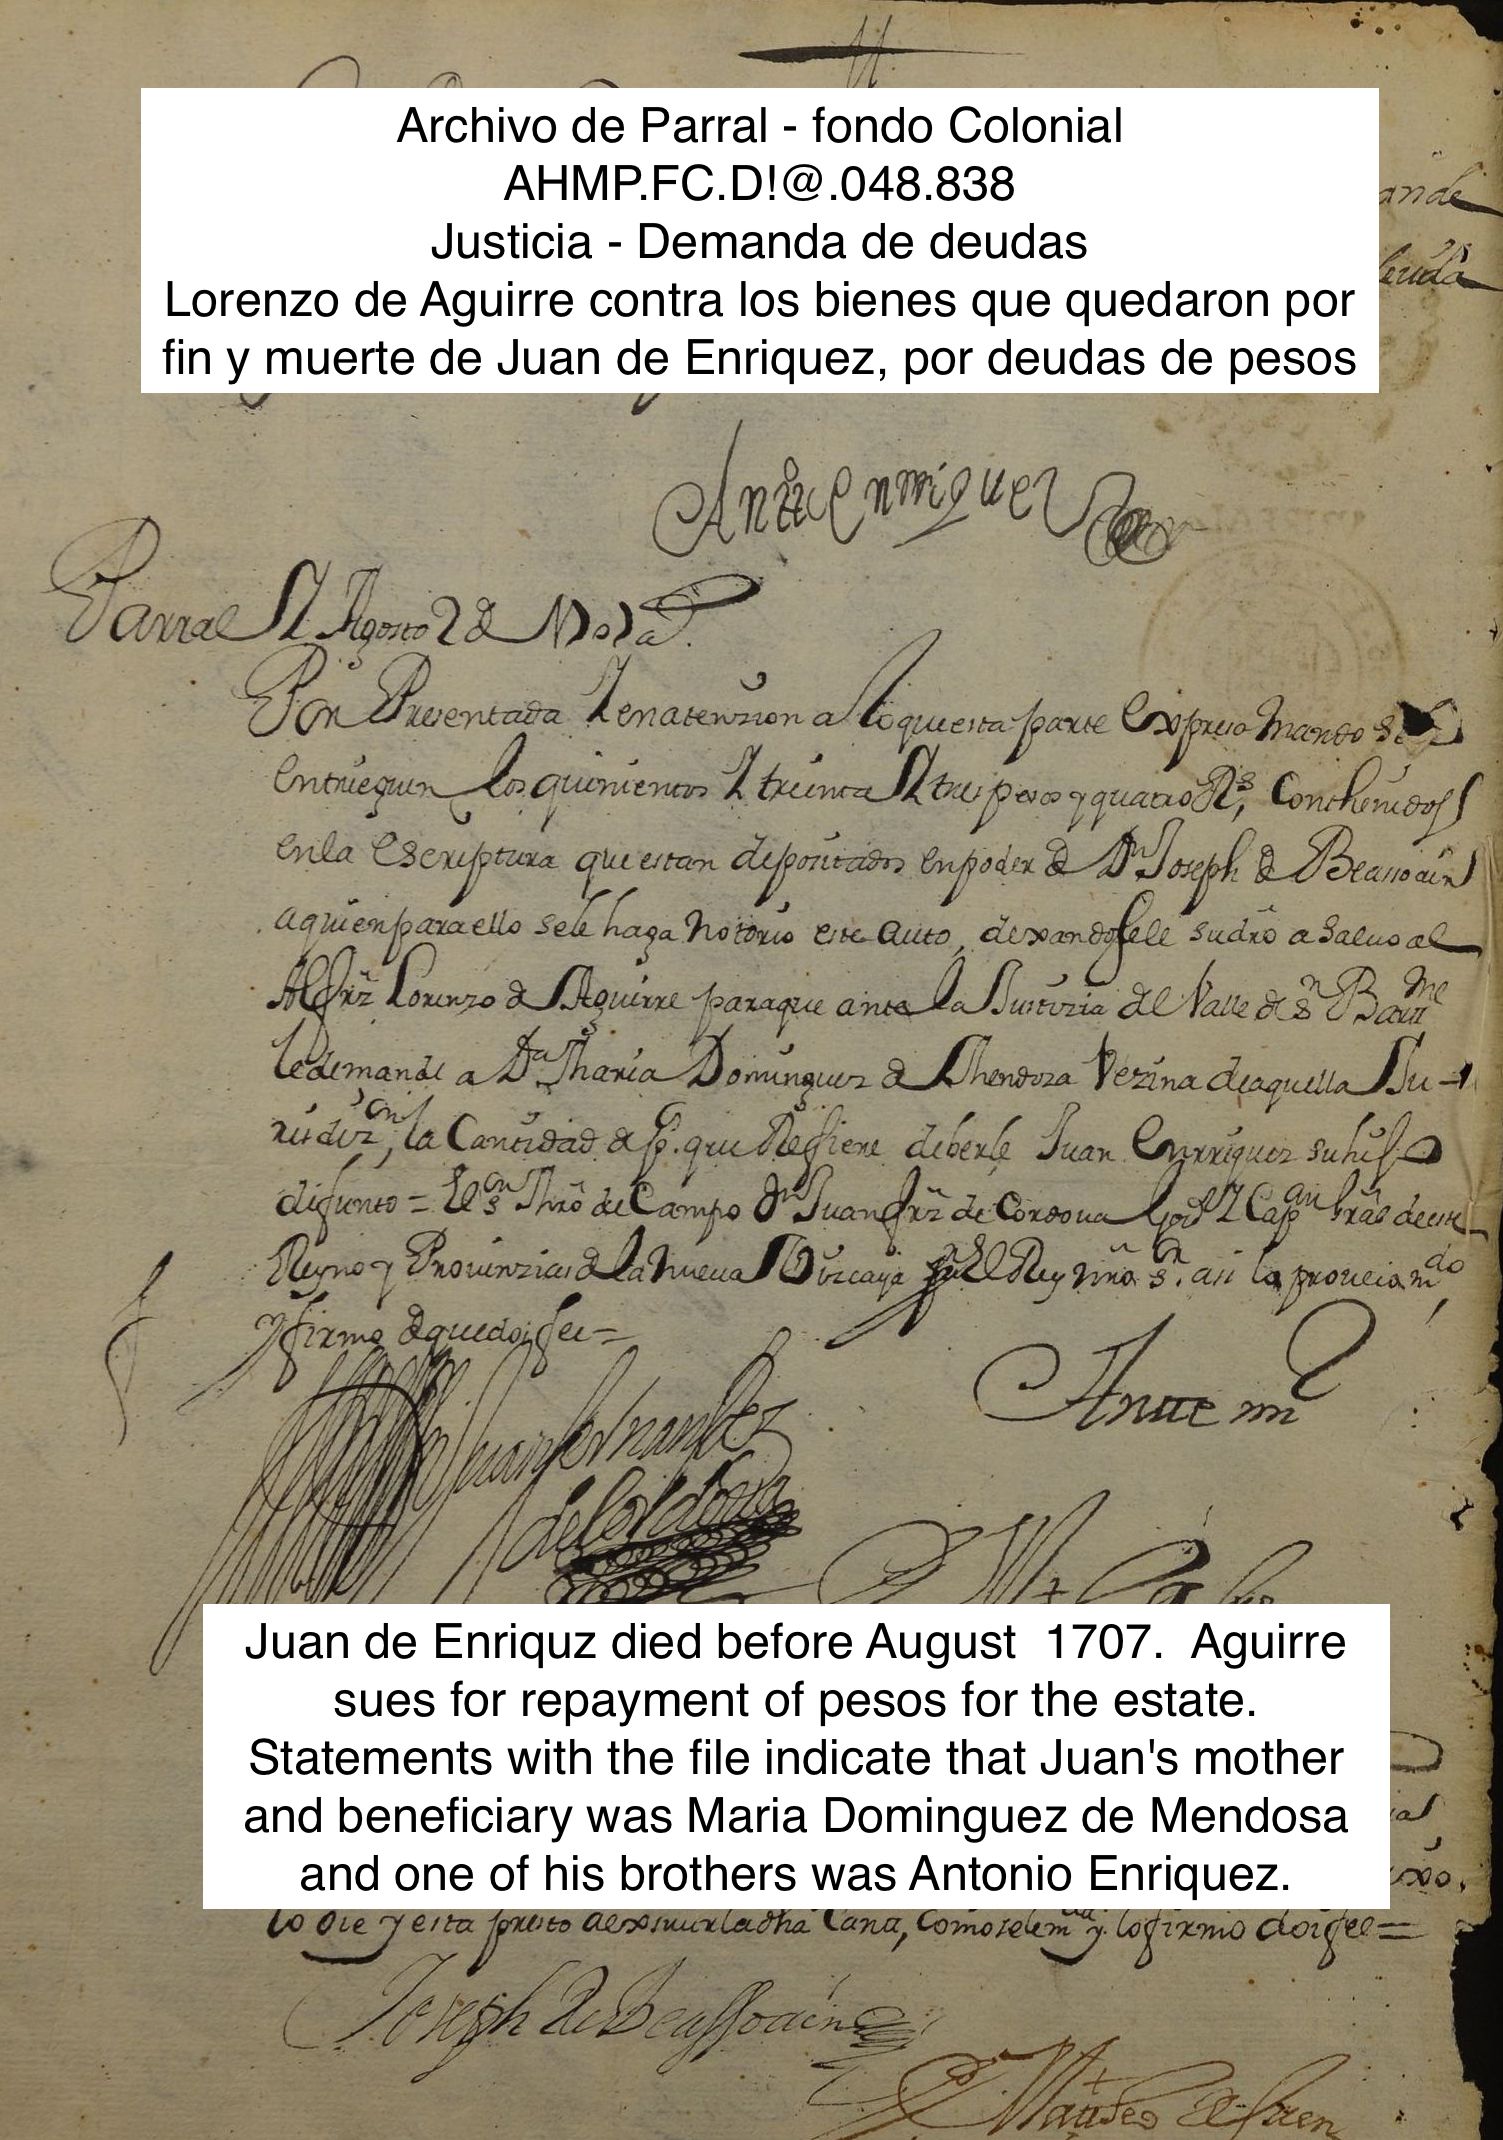 Archivo de Parral - fondo Colonial
AHMP.FC.D!@.048.838
Justicia - Demanda de deudas
Lorenzo de Aguirre contra los bienes que quedaron por
fin y muerte de Juan de Enriquez, por deudas de pesos
Antt Enrriquez
Parral Y Agosto 2 de
Por Presentada Y en atenzion a lo que esta parte expresa mando se
entrieguen los quinientos Y treinta Y tres pesos y quatro Rs, Conthenidos
en la escriptura que estan depositados en poder de Dn Joseph de Beasoain
a quien para ello se le haga notorio este auto, dexandosele su dro a salvo al
Alfrz Lorenzo de Aguirre para que ante la Justizia del Valle de Sn Barme
le demande a Da Maria Dominguez de Mendoza Vezina de aquella Ju-
risdizon, la Cantidad de ps. que Refiere deberle Juan Enrriquez su hijo
difunto = El sr Mro de Campo Dn Juan frz de Cordoua Gor Y Capan Gral de este
Reyno y Prouinzias de la nueua Vizcaya por el Rey nro sr. asi lo proueio mdo
y firmo de que doi fee =
Juan fernandez
de Cordoba
Ante mi
Juan de Enriquz died before August 1707. Aguirre
sues for repayment of pesos for the estate.
Statements with the file indicate that Juan's mother
and beneficiary was Maria Dominguez de Mendosa
and one of his brothers was Antonio Enriquez.
lo oie y esta presto de exsiuir la dha Cana, Como se le m y lo firmo doi fee =
Joseph de Beassoain